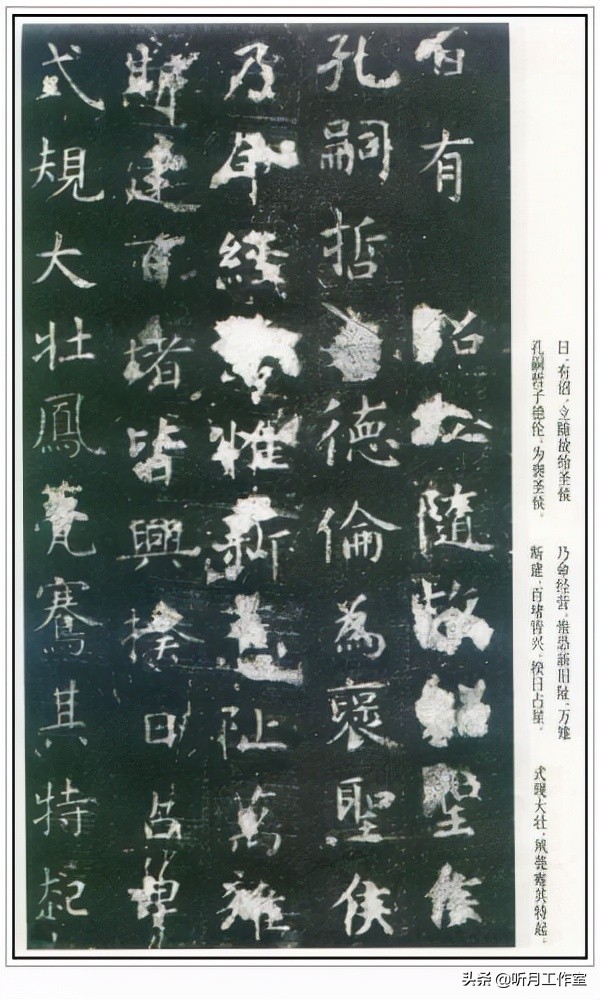 日有詔立隨故紹聖侯
孔嗣哲子德倫為褒聖侯
乃命經營惟新舊阯萬雉
斯建百堵皆興揆日占星
式規大壯鳳甍騫其特起
日,有诏,立随故绍圣侯
孔嗣哲子德伦,为褒圣侯。
乃命经营,惟恐新旧址,万雉
斯建,百堵皆兴,揆日占星。
式规大壮,凤甍骞其特起。
头条 @听月工作室